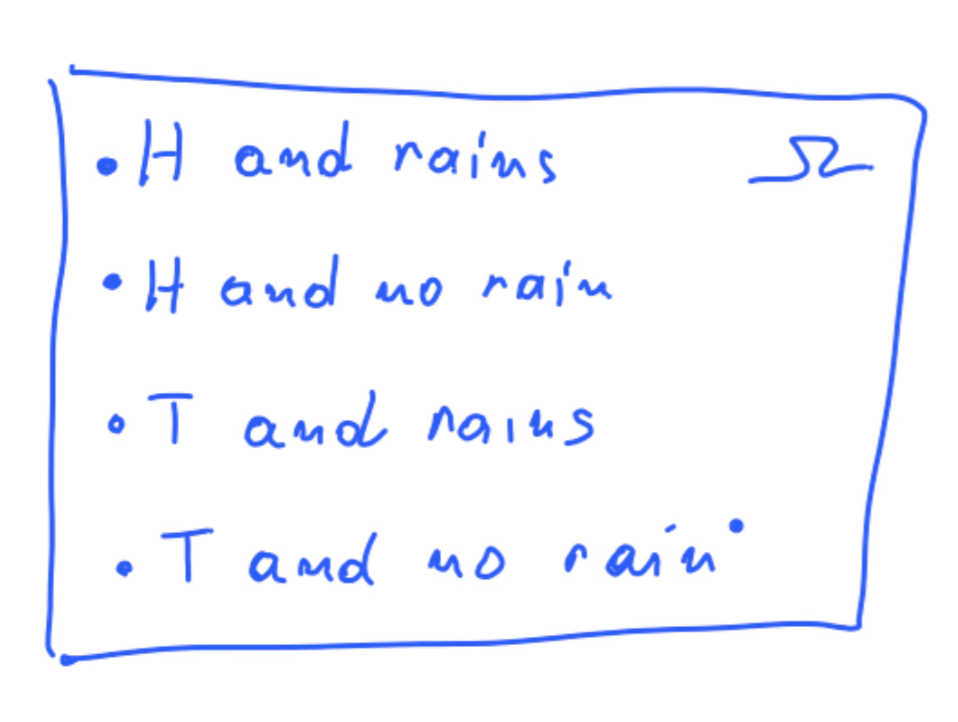 • H and rains Ω
• H and no rain
• T and rains
• T and no rain